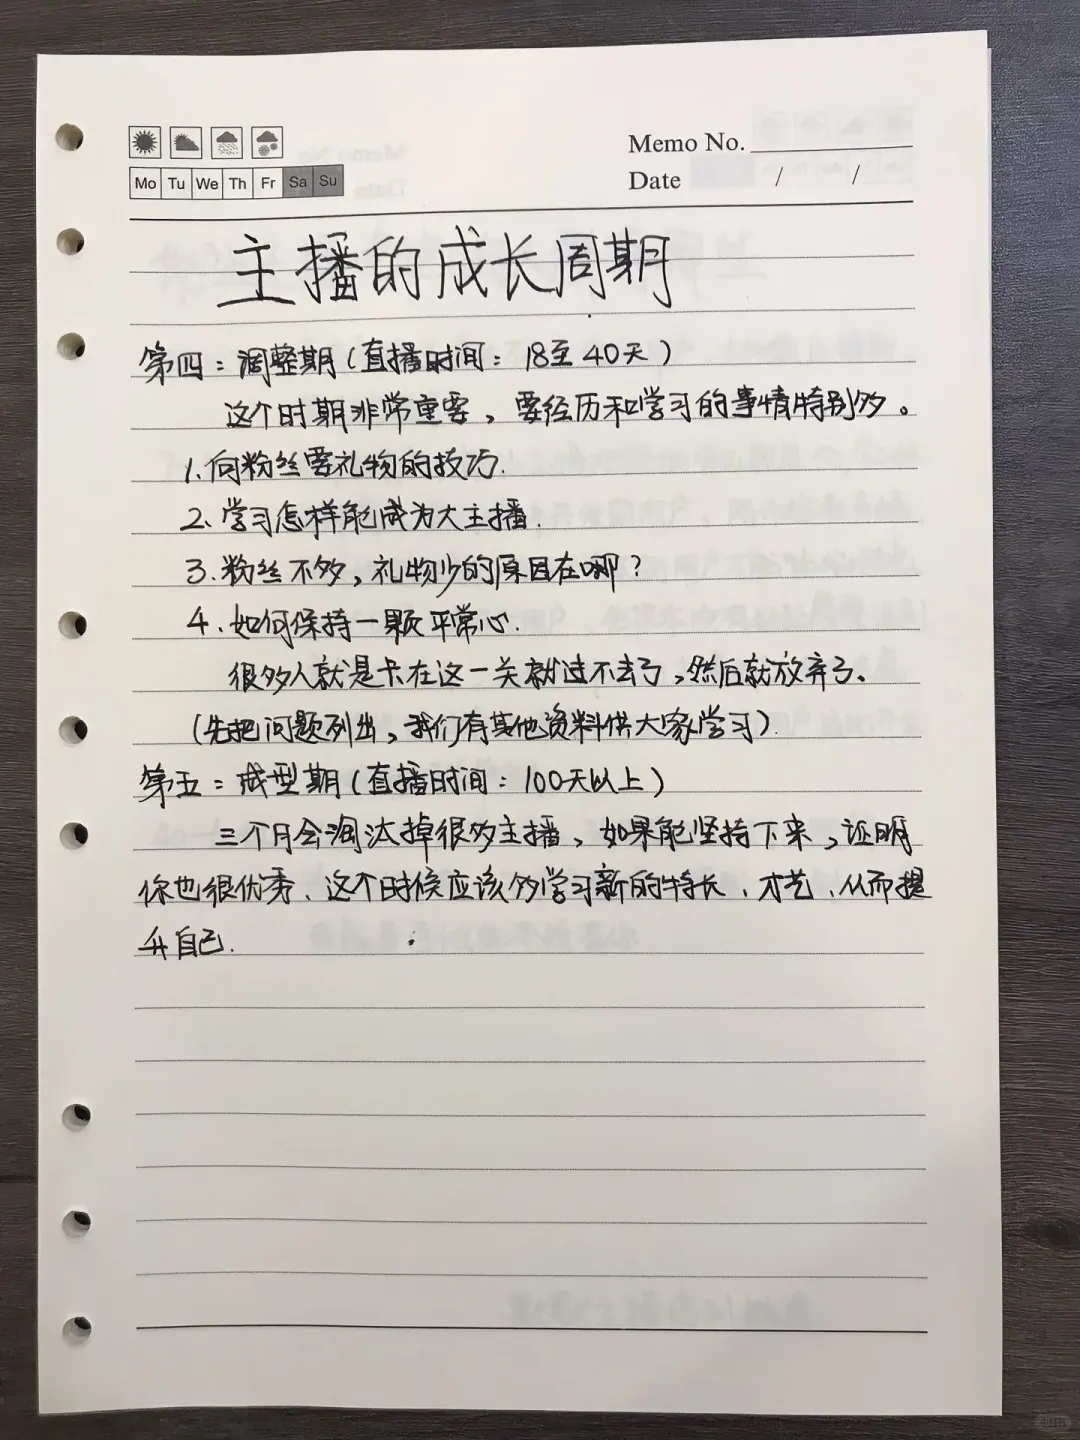 Memo No.
Mo Tu We Th Fr Sa Su
Date / /
主播的成长周期
第四：调整期（直播时间：18至40天）
这个时期非常重要，要经历和学习的事情特别多。
1.向粉丝要礼物的技巧.
2.学习怎样能成为大主播.
3.粉丝不多，礼物少的原因在哪？
4.如何保持一颗平常心.
很多人就是卡在这一关就过不去了，然后就放弃了。
（先把问题列出，我们有其他资料供大家学习）.
第五：成型期（直播时间：100天以上）
三个月会淘汰掉很多主播，如果能坚持下来，证明
你也很优秀、这个时候应该多学习新的特长、才艺、从而提
升自己.